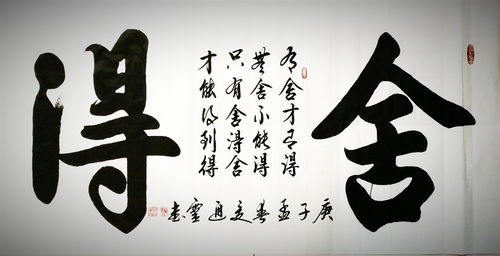 舍得
有舍才有得
無舍不能得
只有舍得舍
才能得到得
庚子孟春